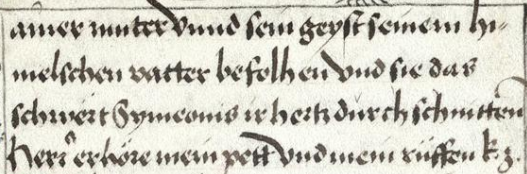 ainer muter vnnd sein geyst seinem hi-
melschen vatter befolhen vnd sie das
schwert Symeonis ir hertz durch schnitten
Herr erhöre mein pett vnd mein rüffen k. z.